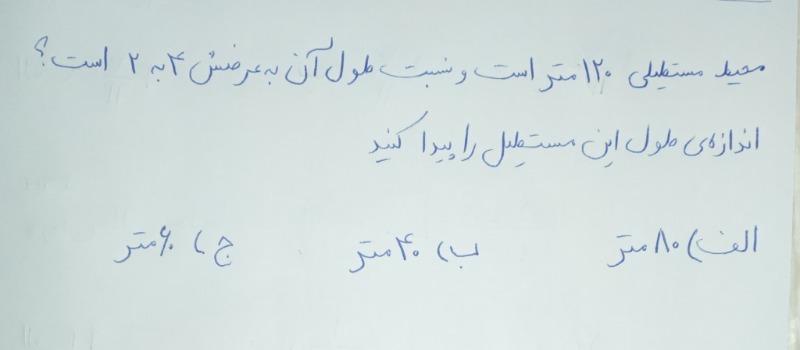 محیط مستطیلی ۱۲۰ متر است و نسبت طول آن به عرضش ۴ به ۲ است؟
اندازه‌ی طول این مستطیل را پیدا کنید
الف) ۸۰ متر ب) ۴۰ متر ج) ۶۰ متر